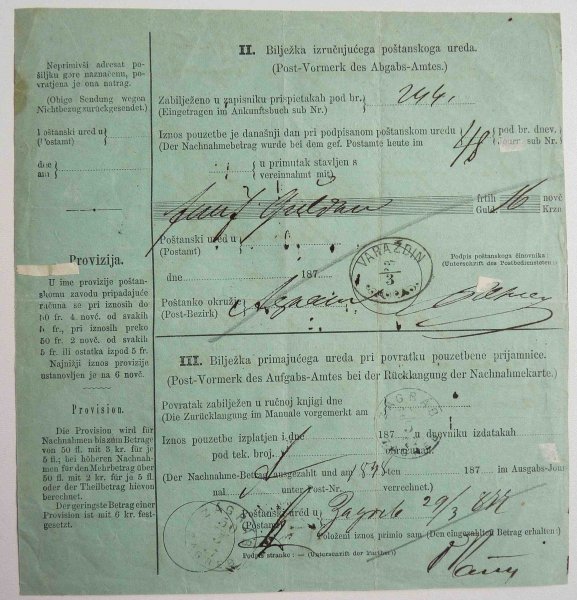 Neprimivši adresat po-
šiljku gore naznačenu, po-
vratjena je ona natrag.
(Obige Sendung wegen
Nichtbezug zurückgesendet.)
Poštanski ured u
(Postamt)
dne
am
Provizija.
U ime provizije poštan-
skomu zavodu pripadajuće
računa se pri iznosih do
50 fr. 4 nové. od svakih
fr., pri iznosih preko
50 fr. 2 nové. od svakih
5 fr. ili ostatka izpod 5 fr.
Najniži iznos provizije
ustanovljen je na 6 nové.
Provision.
Die Provision wird für
Nachnahmen bis zum Betrage
von 50 fl. mit 3 kr. für je
5 fl.; bei höheren Nachnah-
men für den Mehrbetrag über
50 fl. mit 2 kr. für je 5 fl.
oder der Theilbetrag hievon
berechnet.
Der geringste Betrag einer
Provision ist mit 6 kr. fest-
gesetzt.
II. Bilježka izručnjućega poštanskoga ureda.
(Post-Vormerk des Abgabs-Amtes.)
Zabilježeno u zapisniku prispietakah pod br.
(Eingetragen im Ankunftsbuch sub Nr.)
244.
Iznos pouzetbe je današnji dan pri podpisanom poštanskom uredu
(Der Nachnahmebetrag wurde bei dem gef. Postamte heute im
pod br. dnev.
Jour. sub Nr.
u primutak stavljen s
vereinnahmt mit
frtih
Guld.
16
nové
Krzr.
Poštanski ured u
(Postamt)
VARAŽDIN
3
Podpis poštanskoga činovnika:
(Unterschrift des Postbediensteten
dne
187
Poštansko okružje
(Post-Bezirk)
Agram
III. Bilježka primajućega ureda pri povratku pouzetbene prijamnice.
(Post-Vormerk des Aufgabs-Amtes bei der Rücklangung der Nachnahmekarte.)
Povratak zabilježen u ručnoj knjigi dne
(Die Zurücklangung im Manuale vorgemerkt am
ZAGREB
Iznos pouzetbe izplatjen i dne
187
u dnevniku izdatakah
pod tek. broj.
(Der Nachnahme-Betrag ausgezahlt und am
ten
187
im Ausgabs-Jour-
nal
unter Post-Nr.
verrechnet.)
ZAGREB
Poštanski ured u
(Postamt)
Zagreb 29/3
Položeni iznos primio sam (Den eingezahlten Betrag erhalten:)
Podpis stranke: — (Unterschrift der Parthei:)